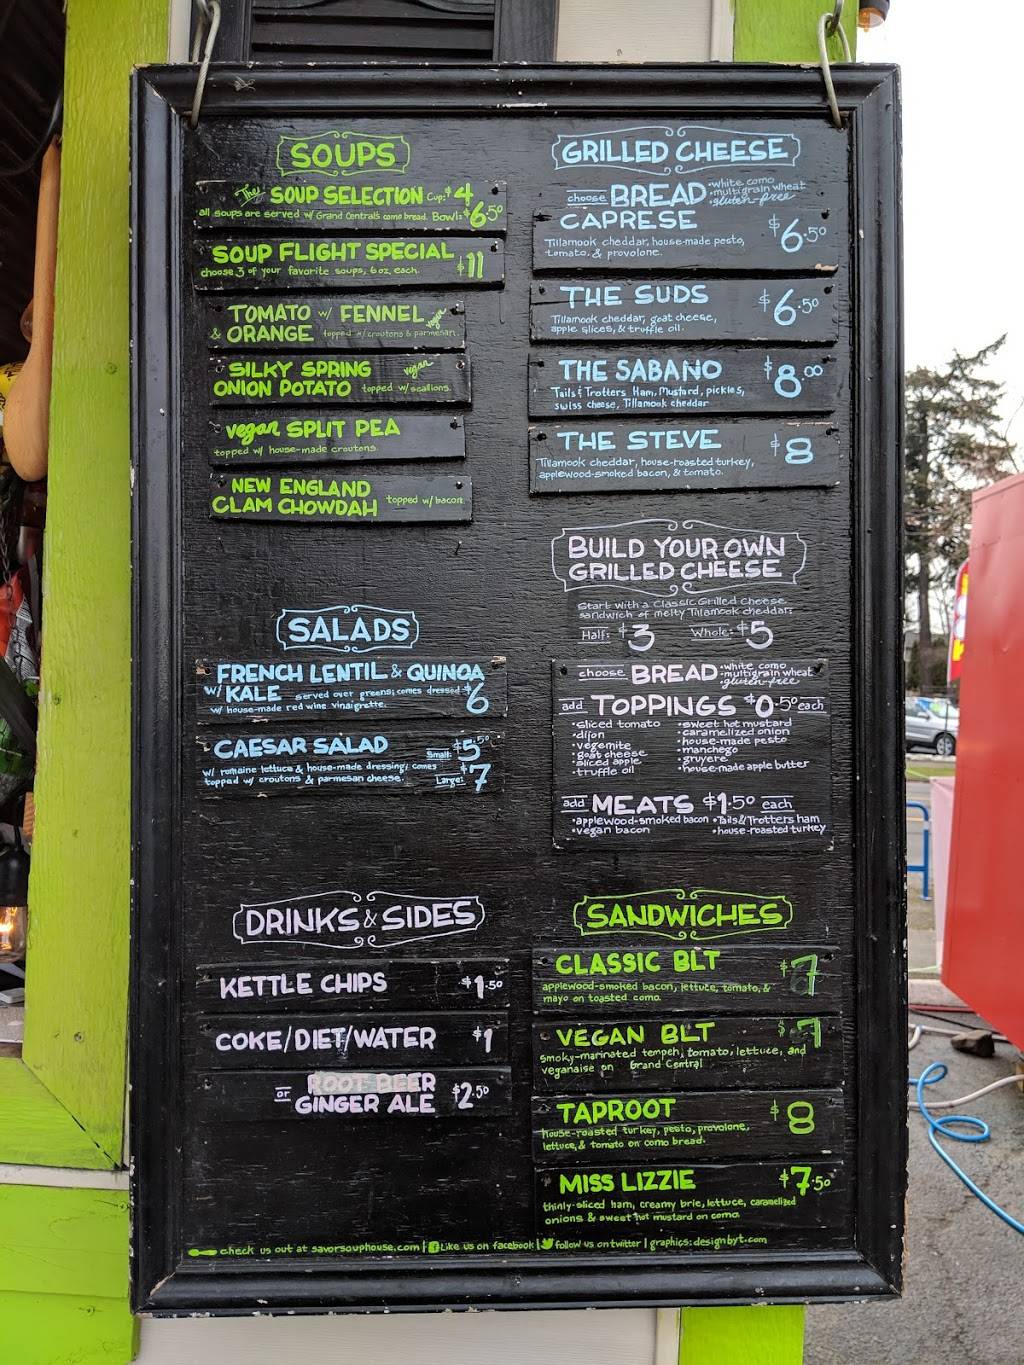 SOUPS
The SOUP SELECTION Cup: $4
all soups are served w/ Grand Central's como bread. Bowl: $6.50
SOUP FLIGHT SPECIAL
choose 3 of your favorite soups, 6 oz. each. $11
TOMATO w/ FENNEL
& ORANGE vegan
topped w/ croutons & parmesan.
SILKY SPRING vegan
ONION POTATO topped w/ scallions.
vegan SPLIT PEA
topped w/ house-made croutons.
NEW ENGLAND
CLAM CHOWDAH topped w/ bacon.
SALADS
FRENCH LENTIL & QUINOA
w/ KALE served over greens; comes dressed $6
w/ house-made red wine vinaigrette.
CAESAR SALAD Small: $5.50
w/ romaine lettuce & house-made dressing; comes
topped w/ croutons & parmesan cheese. Large: $7
DRINKS & SIDES
KETTLE CHIPS $1.50
COKE/DIET/WATER $1
ROOT BEER
or GINGER ALE $2.50
GRILLED CHEESE
choose BREAD •white como
•multigrain wheat
•gluten-free
CAPRESE $6.50
Tillamook cheddar, house-made pesto,
tomato, & provolone.
THE SUDS $6.50
Tillamook cheddar, goat cheese,
apple slices, & truffle oil.
THE SABANO $8.00
Tails & Trotters Ham, Mustard, pickles,
swiss cheese, Tillamook cheddar
THE STEVE $8
Tillamook cheddar, house-roasted turkey,
applewood-smoked bacon, & tomato.
BUILD YOUR OWN
GRILLED CHEESE
Start with a Classic Grilled Cheese
sandwich of melty Tillamook cheddar:
Half: $3 Whole: $5
choose BREAD •white como
•multigrain wheat
•gluten-free
add TOPPINGS $0.50 each
•sliced tomato
•dijon
•vegemite
•goat cheese
•sliced apple
•truffle oil
•sweet hot mustard
•caramelized onion
•house-made pesto
•manchego
•gruyere
•house-made apple butter
add MEATS $1.50 each
•applewood-smoked bacon •Tails & Trotters ham
•vegan bacon •house-roasted turkey
SANDWICHES
CLASSIC BLT $7
applewood-smoked bacon, lettuce, tomato, &
mayo on toasted como.
VEGAN BLT $7
smoky-marinated tempeh, tomato, lettuce, and
veganaise on Grand Central
TAPROOT $8
house-roasted turkey, pesto, provolone,
lettuce, & tomato on como bread.
MISS LIZZIE $7.50
thinly-sliced ham, creamy brie, lettuce, caramelized
onions & sweet hot mustard on como.
check us out at savorsouphouse.com | f Like us on facebook | follow us on twitter | graphics: designbyt.com